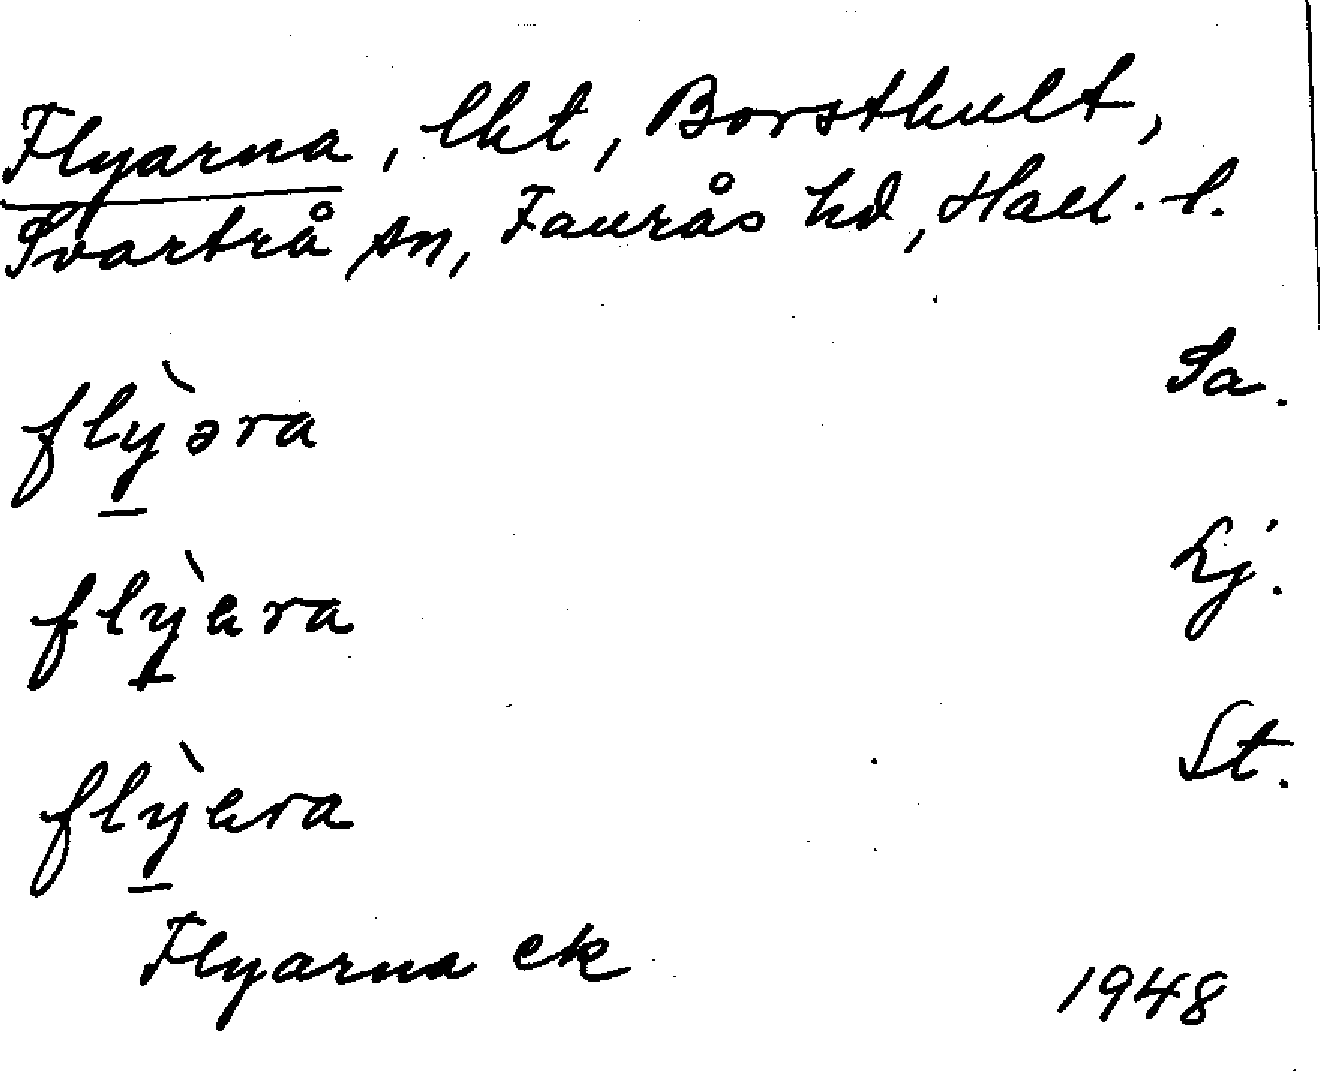 Flyarna, lht, Borsthult,
Svartrå sn, Faurås hd, Hall. l.
flỳəra Sa.
flỳara Lj.
flỳara St.
Flyarna ek
1948